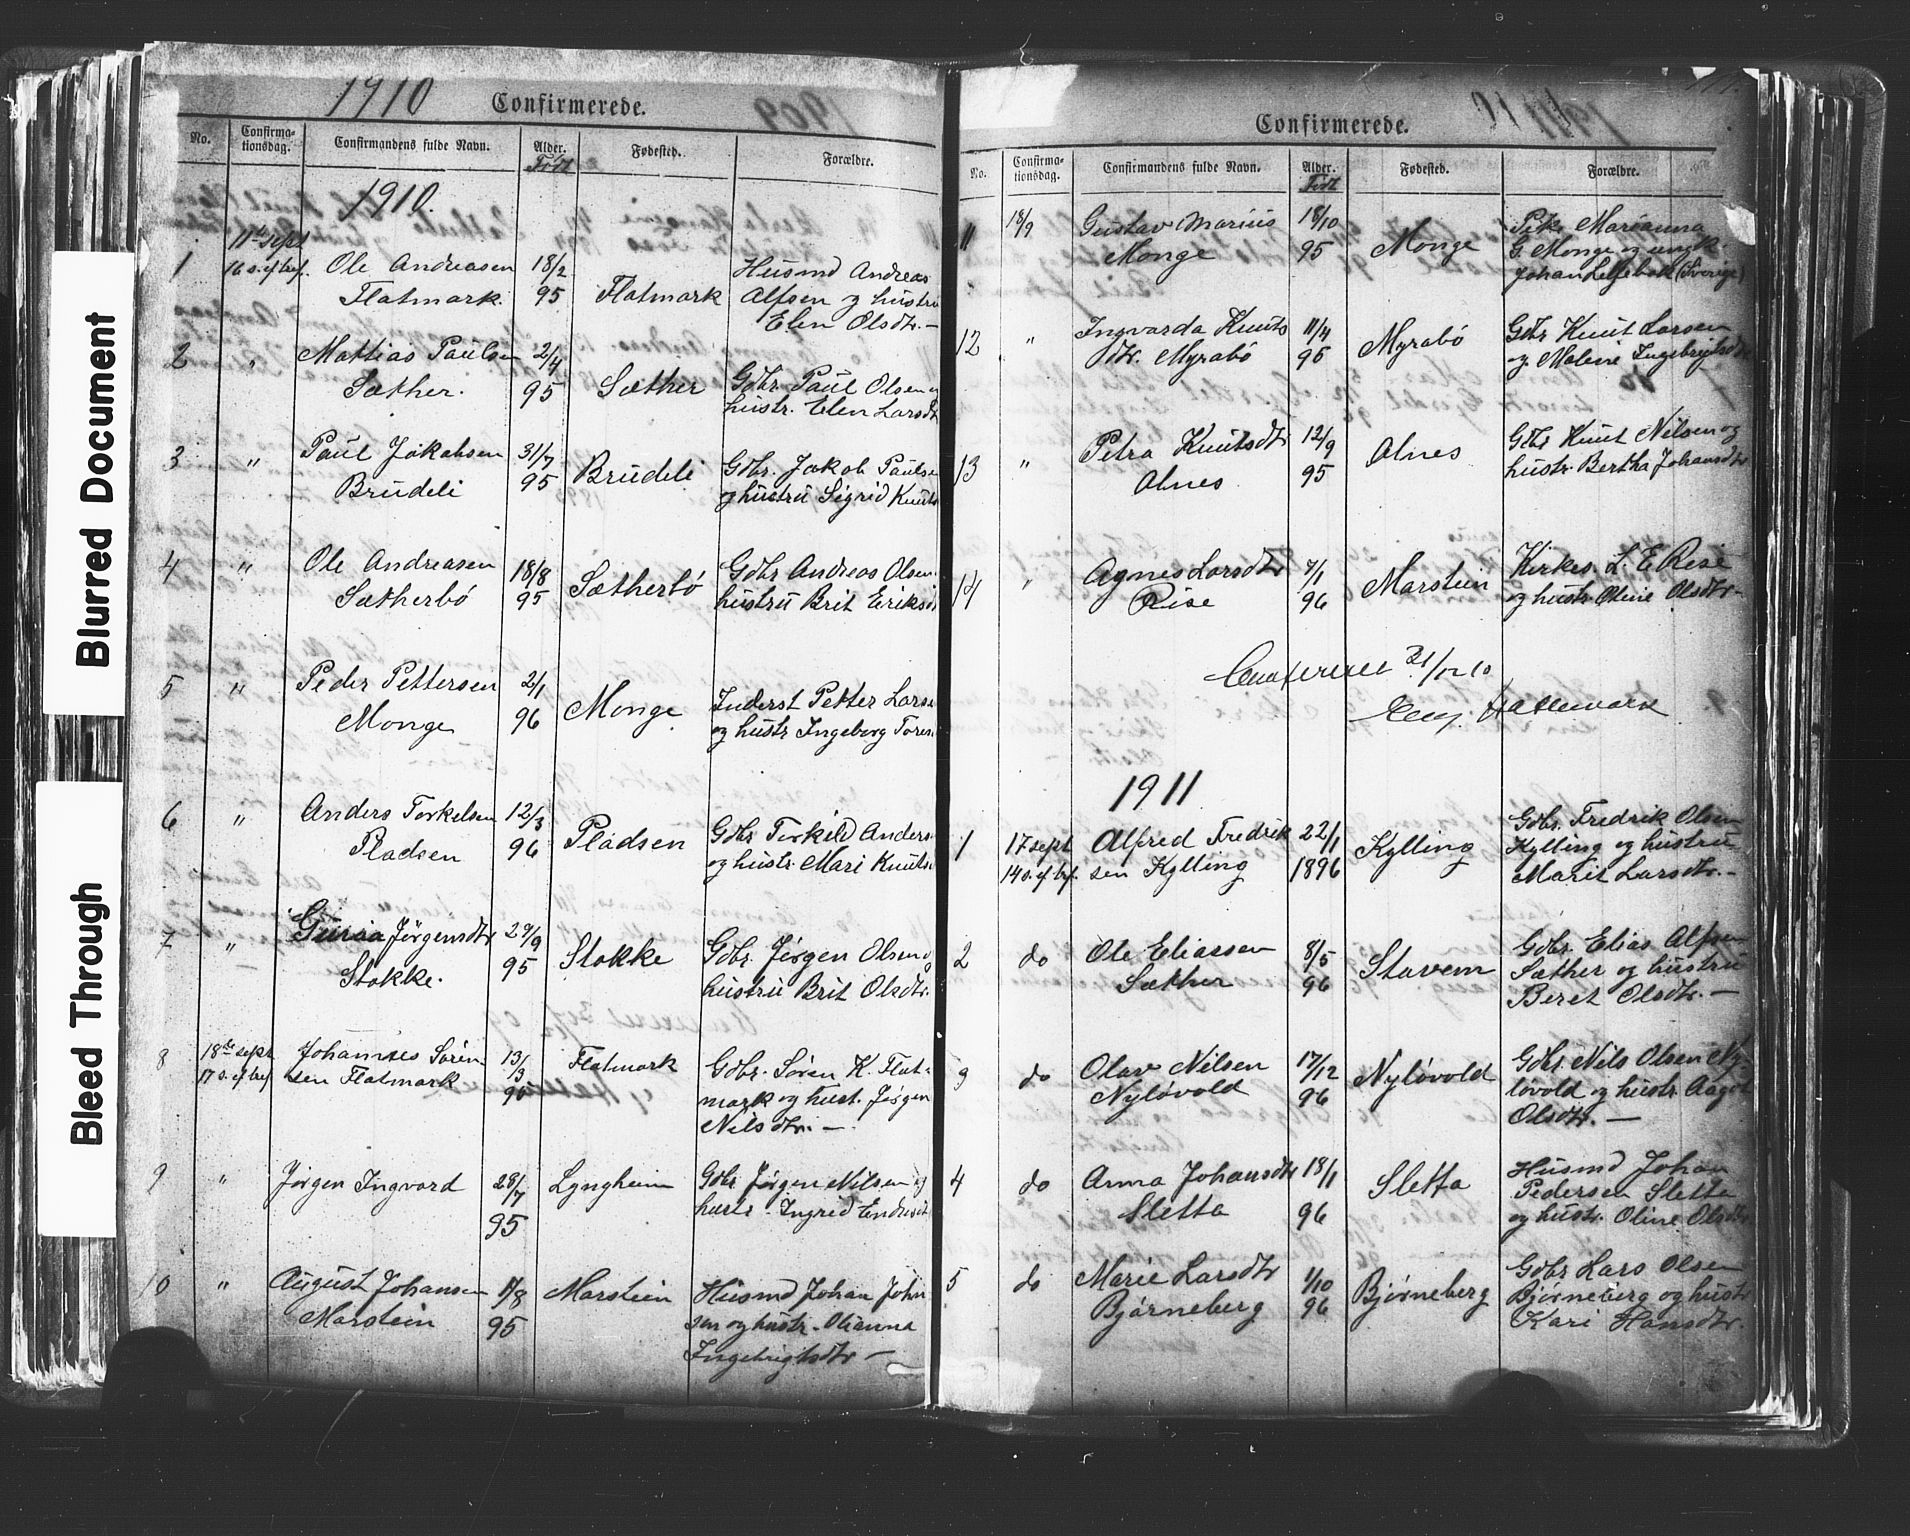 Blurred Document
Bleed Through
1910
Confirmerede.
No.
Confirma-
tionsdag.
Confirmandens fulde Navn.
Alder.
Født
Fødested.
Forældre.
1910.
1
11te sept
16 s. ef tref.
Ole Andreasen
Flatmark.
18/2
95
Flatmark
Husmd Andreas
Alfsen og hustru
Elen Olsdtr. —
2
"
Mattias Paulsen
Sæther.
2/4
95
Sæther
Gdbr. Paul Olsen og
hustr. Elen Larsdtr
3
"
Paul Jakobsen
Brudeli
31/7
95
Brudeli
Gdbr. Jakob Paulsen
og hustru Sigrid Knuts
4
"
Ole Andreasen
Sætherbö
18/8
95
Sætherbö
Gdbr Andreas Olsen
hustru Brit Eriksd
5
"
Peder Pettersen
Monge
2/1
96
Monge
Inderst Petter Larse
og hustr Ingeborg Toren
6
"
Anders Torkelsen
Pladsen
12/3
96
Pladsen
Gdbr Torkild Anders
og hustr. Mari Knuts
7
"
Guria Jörgensdtr
Stokke.
29/9
95
Stokke
Gdbr. Jörgen Olsen og
hustru Brit Olsdtr.
8
18de sept
17 s. ef tref
Johannes Sören-
sen Flatmark
13/3
95
Flatmark
Gdbr. Sören K. Flat-
mark og hust. Jörgen
Nilsdtr. —
9
"
Jörgen Ingvard
28/7
95
Lyngheim
Gdbr Jörgen Nilsen og
hustr. Ingrid Endresdt
10
"
August Johansen
Marstein
1/8
95
Marstein
Husmd Johan John
sen og hustr. Olianna
Ingebrigtsdtr —
Confirmerede.
No.
Confirma-
tionsdag.
Confirmandens fulde Navn.
Alder.
Født
Fødested.
Forældre.
11
18/9
Gustav Marius
Monge
18/10
95
Monge
Pike Marianna
G. Monge og ungk.
Johan (Sverige)
12
"
Ingvarda Knuts
dtr. Myrabö
11/4
95
Myrabö
Gdbr Knut Larsen
og Malene Ingebrigtsdtr
13
"
Petra Knutsdtr
Alnes
12/9
95
Alnes
Gdbr Knut Nilsen og
hustr. Bertha Johansdtr
14
"
Agnes Larsdtr
Rise
7/1
96
Marstein
Kirkes. L. E. Rise
og hustr. Oline Olsdtr —
Confereret 31/12 10
Hallemark
1911
1
17 sept
14 s. ef tref.
Alfred Fredrik
sen Kylling
22/1
1896
Kylling
Gdbr. Fredrik Olsen
Kylling og hustru
Marit Larsdtr. —
2
do
Ole Eliassen
Sæther
8/5
96
Stavem
Gdbr. Elias Alfsen
Sæther og hustru
Beret Olsdtr. —
3
do
Olav Nilsen
Nylövold
17/12
96
Nylövold
Gdbr. Nils Olsen Ny-
lövold og hustr. Aagot
Olsdtr. —
4
do
Anna Johansdtr
Sletta
18/1
96
Sletta
Husmd Johan
Pedersen Sletta
og hustr. Oline Olsdtr
5
do
Marie Larsdtr
Bjørneberg
1/10
96
Bjørneberg
Gdbr Lars Olsen
Bjørneberg og hustr
Kari Hansdtr.